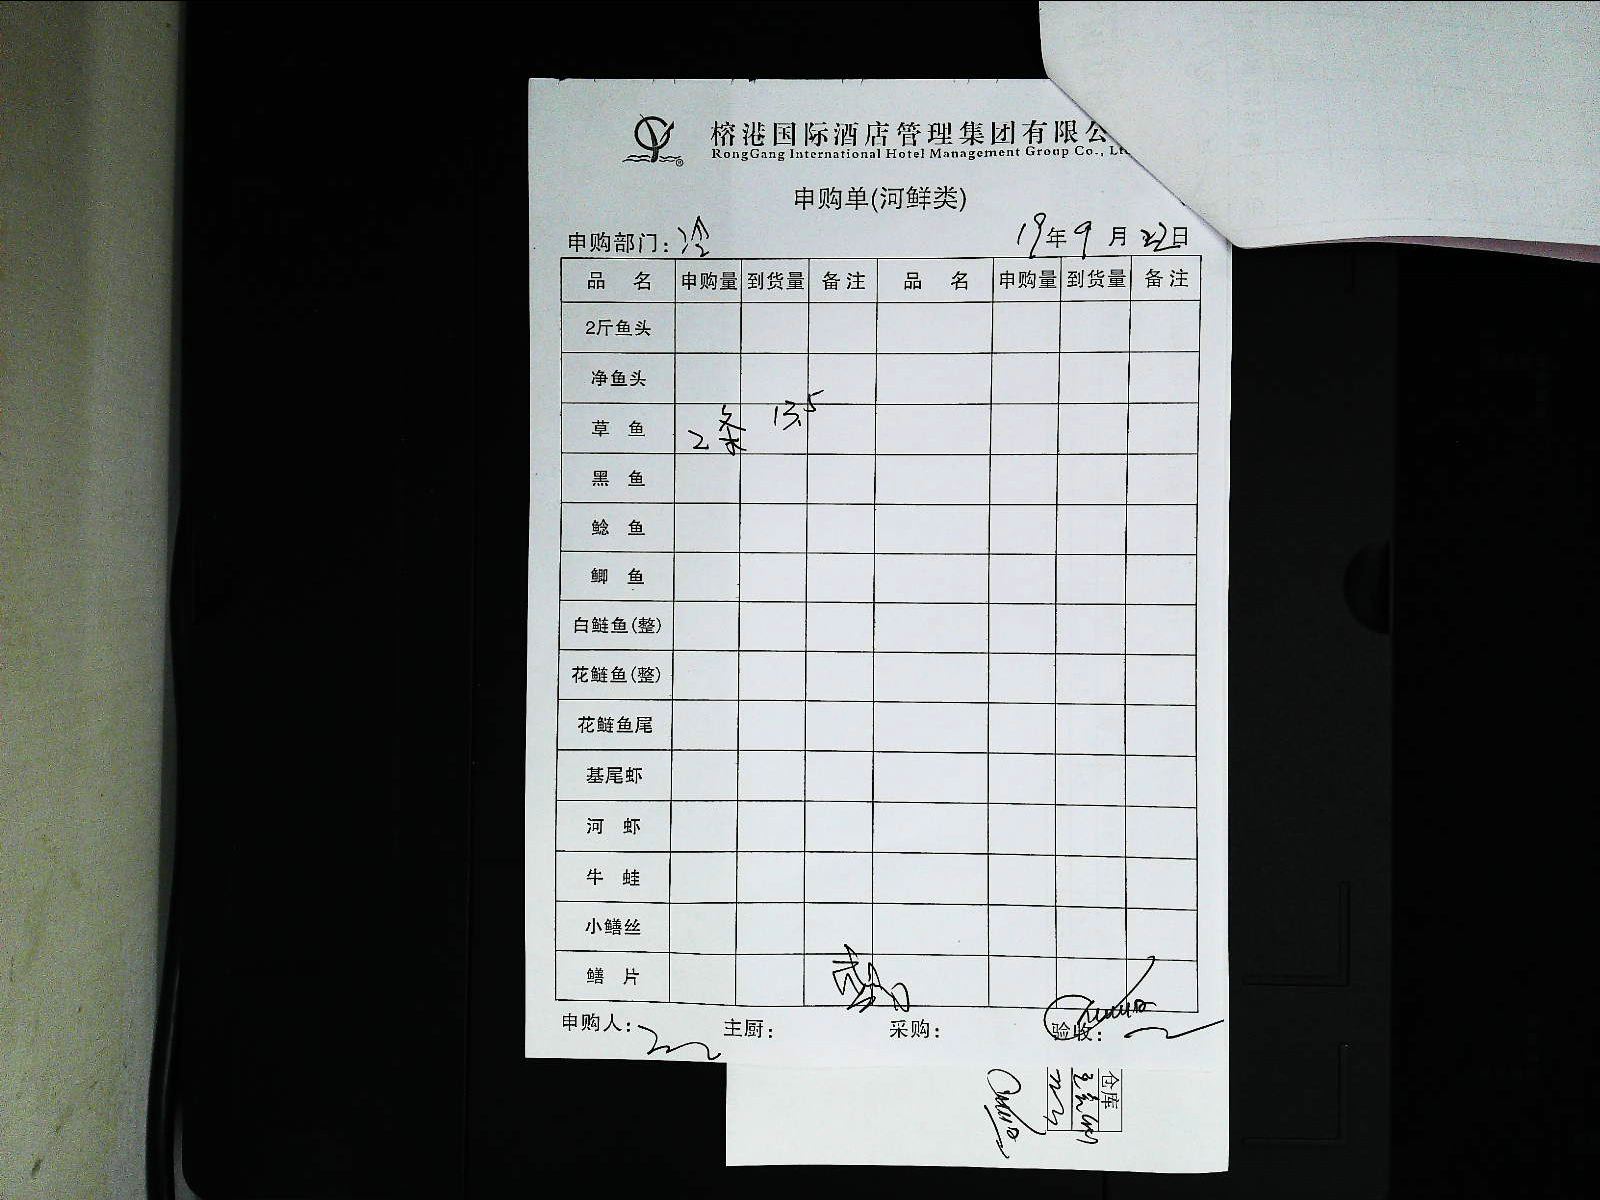 榕港国际酒店管理集团有限公
RongGang International Hotel Management Group Co., Lt
申购单(河鲜类)
申购部门: 冷 19年9月22日
品 名 申购量 到货量 备注 品 名 申购量 到货量 备注
2斤鱼头
净鱼头
草 鱼 2条 13.5
黑 鱼
鲶 鱼
鲫 鱼
白鲢鱼(整)
花鲢鱼(整)
花鲢鱼尾
基尾虾
河 虾
牛 蛙
小鳝丝
鳝 片
申购人: 主厨: 采购: 验收:
仓库